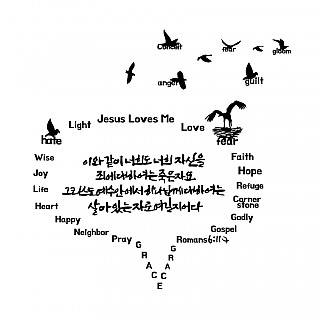 Conceit
fear
gloom
anger
guilt
Jesus Loves Me
Light
Love
hate
fear
Wise
이와 같이 너희도 너희 자신을
Faith
Joy
죄에 대하여는 죽은 자요
Hope
Life
그리스도 예수 안에서 하나님께 대하여는
Refuge
Heart
살아 있는 자로 여길지어다
Corner
stone
Happy
Godly
Neighbor
Gospel
Pray
Romans 6:11
GRACE
GRACE